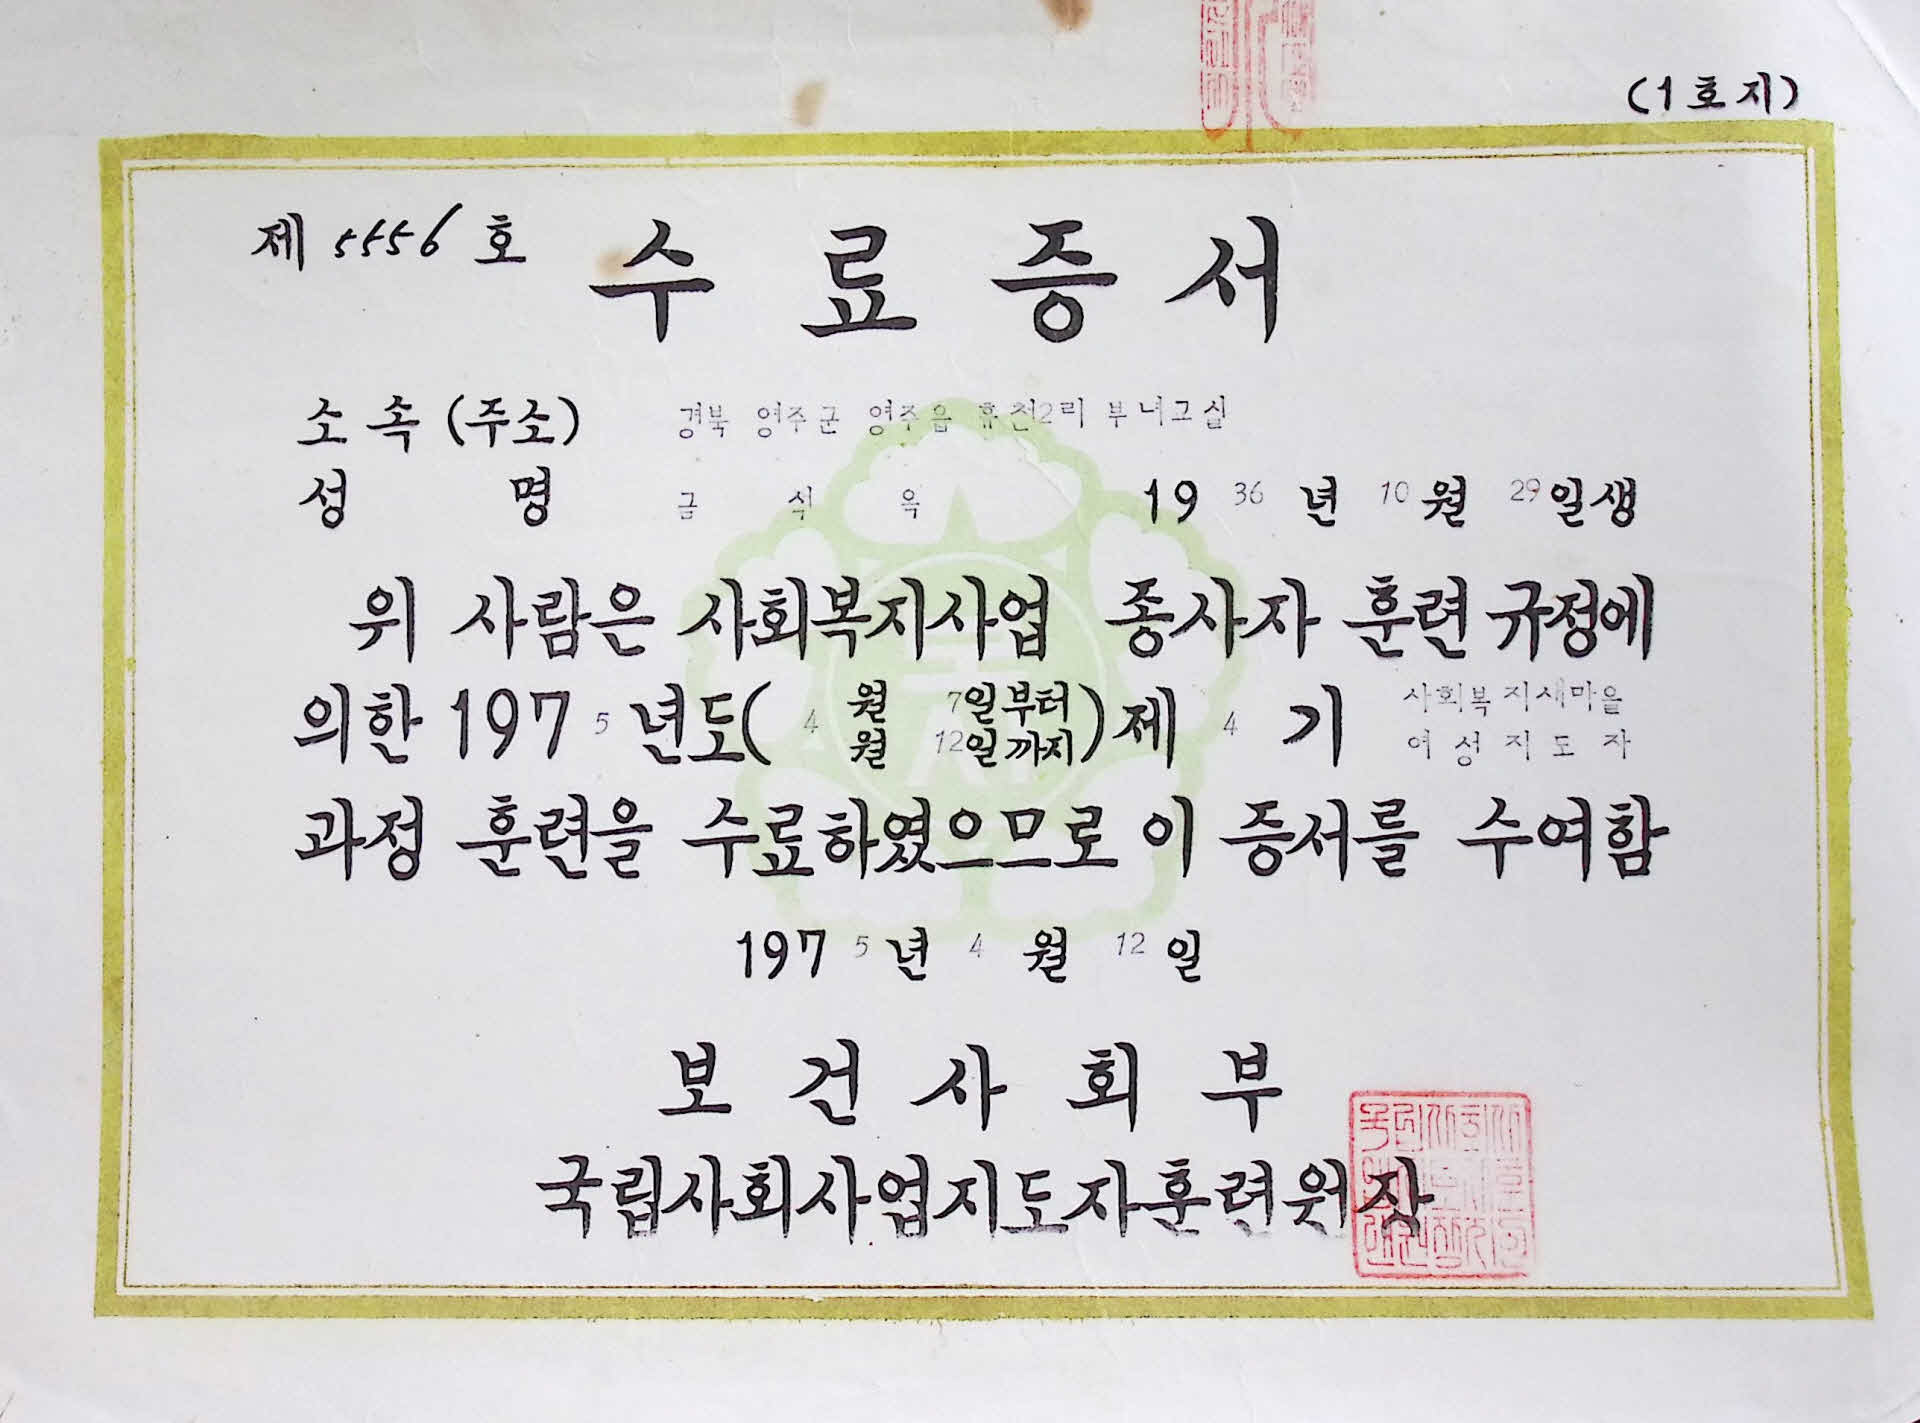 (1호지)
제 5556 호
수료증서
소속 (주소) 경북 영주군 영주읍 휴천2리 부녀교실
성 명 금 식 옥 1936년 10월 29일생
위 사람은 사회복지사업 종사자 훈련 규정에
의한 1975년도( 4월 7일부터
월 12일까지) 제 4 기 사회복지새마을
여성지도자
과정 훈련을 수료하였으므로 이 증서를 수여함
1975년 4월 12일
보건사회부
국립사회사업지도자훈련원장